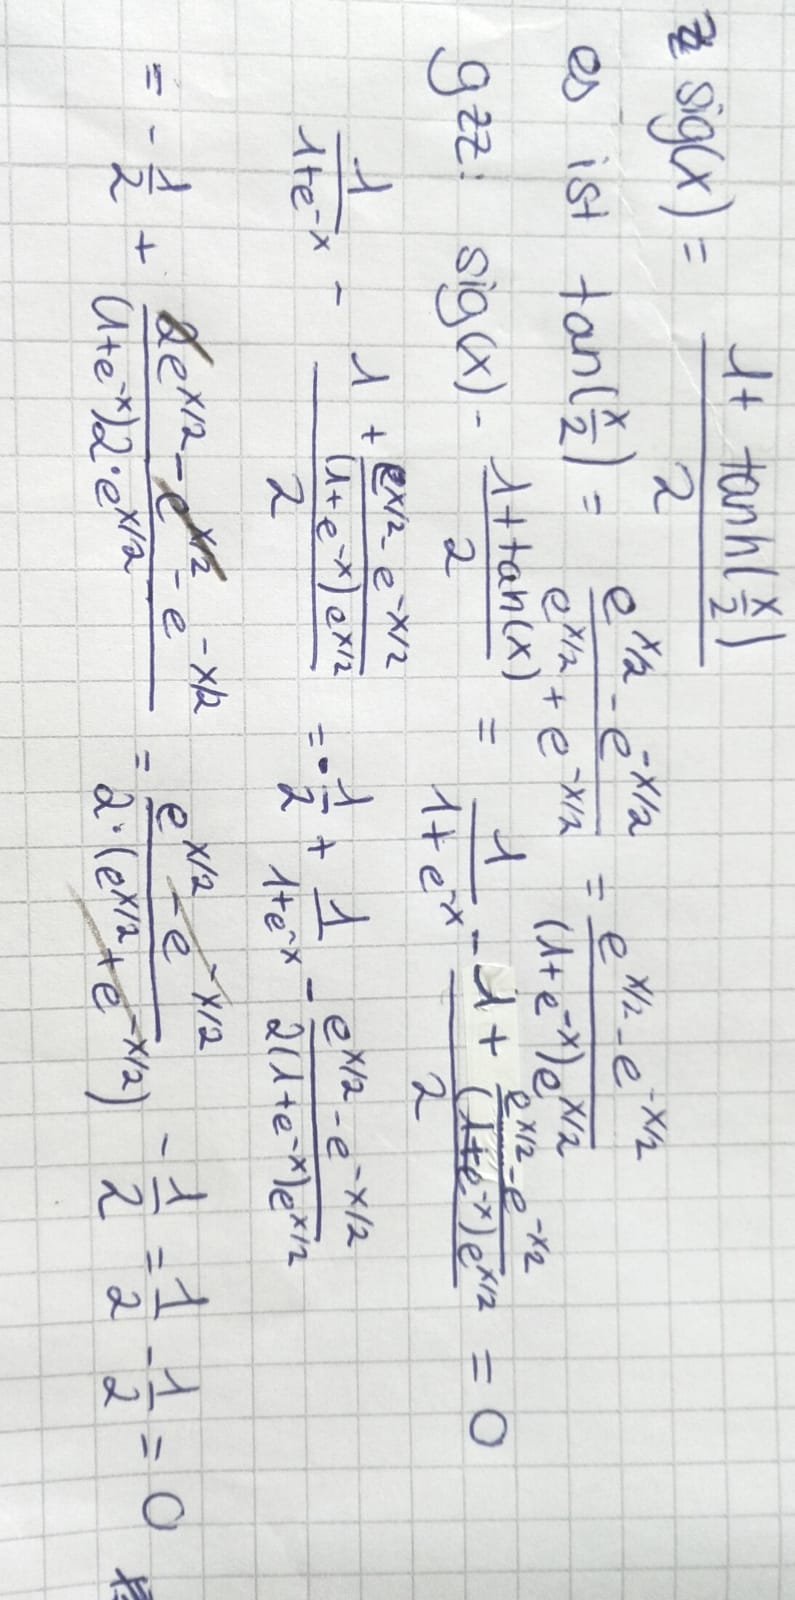 z sig(x) = (1 + tanh(x/2))/2
es ist tan(x/2) = (e^(x/2) - e^(-x/2))/(e^(x/2) + e^(-x/2)) = (e^(x/2) - e^(-x/2))/((1+e^-x)e^(x/2))
gzz: sig(x) - (1+tan(x))/2 = 1/(1+e^-x) - (1 + (e^(x/2) - e^(-x2))/((1+e^-x)e^(x/2)))/2 = 0
1/(1+e^-x) - (1 + (e^(x/2) - e^(-x/2))/((1+e^-x)e^(x/2)))/2 = -1/2 + 1/(1+e^-x) - (e^(x/2) - e^(-x/2))/(2(1+e^-x)e^(x/2))
= -1/2 + (2e^(x/2) - e^(x/2) - e^(-x/2))/((1+e^-x)2·e^(x/2)) = (e^(x/2) - e^(-x/2))/(2·(e^(x/2) + e^(-x/2))) - 1/2 = 1/2 - 1/2 = 0